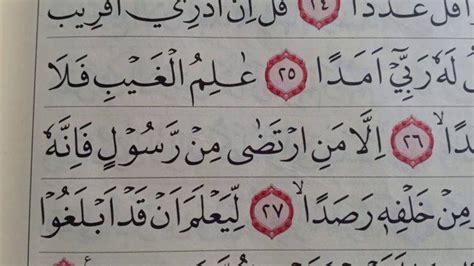 اَقَلُّ عَدَدًا ٢٤ قُلْ اِنْ اَدْرِي اَقَرِيبٌ
لَهُ رَبِّيٓ اَمَدًا ٢٥ عَالِمُ الْغَيْبِ فَلَا
دًا ٢٦ اِلَّا مَنِ ارْتَضٰى مِنْ رَسُولٍ فَاِنَّهُ
مِنْ خَلْفِهٖ رَصَدًا ٢٧ لِيَعْلَمَ اَنْ قَدْ اَبْلَغُوا